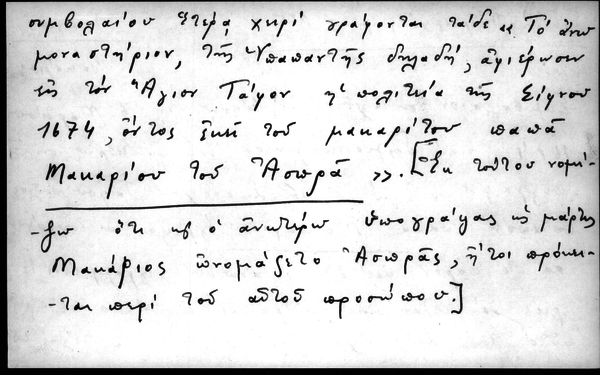 συμβολαίου ἑτέρᾳ χειρὶ γράφονται τάδε « Τὸ ἄνω
μοναστήριον, τῆς Ὑπαπαντῆς δηλαδή, ἀφιέρωσεν
εἰς τὸν Ἅγιον Τάφον ἡ πολιτεία τῆς Σίφνου
1674, ὄντος ἐκεῖ τοῦ μακαρίτου παπᾶ
Μακαρίου τοῦ Ἀσπρᾶ ». [Ἐκ τούτου νομί-
-ζω ὅτι καὶ ὁ ἀνωτέρω ὑπογράψας ὡς μάρτυς
Μακάριος ὠνομάζετο Ἀσπρᾶς, ἤτοι πρόκει-
-ται περὶ τοῦ αὐτοῦ προσώπου.]